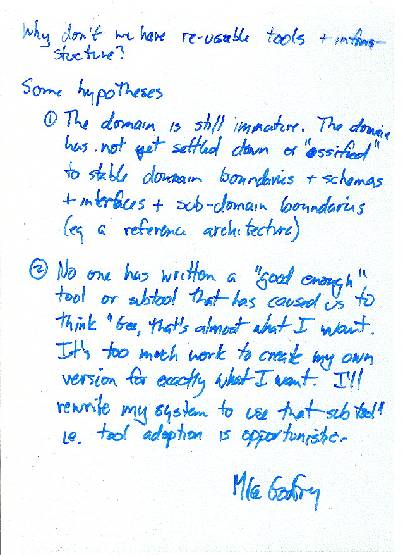 Why don't we have re-usable tools + infra-
structure?
Some hypotheses
① The domain is still immature. The domain
has not yet settled down or "ossified"
to stable domain boundaries + schemas
+ interfaces + sub-domain boundaries
(eg a reference architecture)
② No one has written a "good enough"
tool or subtool that has caused us to
think "Gee, that's almost what I want.
It's too much work to create my own
version for exactly what I want. I'll
rewrite my system to use that subtool"
ie. tool adoption is opportunistic.
Mike Godfrey